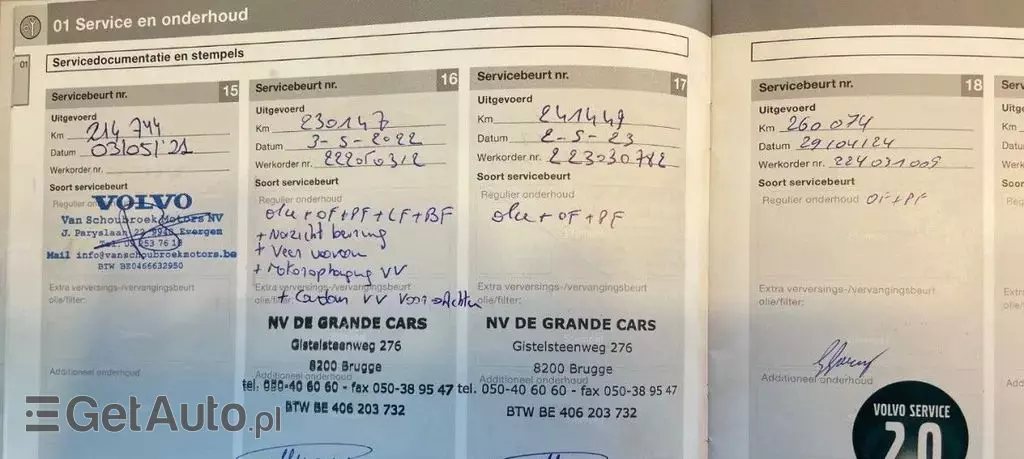 01 Service en onderhoud
01
Servicedocumentatie en stempels
Servicebeurt nr. 15
Uitgevoerd
Km 214 744
Datum 03/05/'21
Werkorder nr.
Soort servicebeurt
Regulier onderhoud
VOLVO
Van Schoubroek Motors NV
J. Paryslaan 9940 Evergem
Mail info@vanschoubroekmotors.be
BTW BE0466632950
Extra verversings-/vervangingsbeurt
olie/filter:
Additioneel onderhoud
Servicebeurt nr. 16
Uitgevoerd
Km 230147
Datum 3-5-2022
Werkorder nr. 222050312
Soort servicebeurt
Regulier onderhoud
olie + OF+PF+LF+BF
+ Nazicht
+ Veer
+ Motorophanging VV
Extra verversings-/vervangingsbeurt
olie/filter:
+ Cardan VV
NV DE GRANDE CARS
Gistelsteenweg 276
8200 Brugge
Additioneel onderhoud
tel. 050-40 60 60 - fax 050-38 95 47
BTW BE 406 203 732
Servicebeurt nr. 17
Uitgevoerd
Km 241449
Datum 2-5-23
Werkorder nr. 223030782
Soort servicebeurt
Regulier onderhoud
olie + OF + PF
Extra verversings-/vervangingsbeurt
olie/filter:
NV DE GRANDE CARS
Gistelsteenweg 276
8200 Brugge
Additioneel onderhoud
tel. 050-40 60 60 - fax 050-38 95 47
BTW BE 406 203 732
Servicebeurt nr. 18
Uitgevoerd
Km 260 074
Datum 29/04/24
Werkorder nr. 224031009
Soort servicebeurt
Regulier onderhoud OF+PF
Extra verversings-/vervangingsbeurt
olie/filter:
Additioneel onderhoud
VOLVO SERVICE
2.0
GetAuto.pl